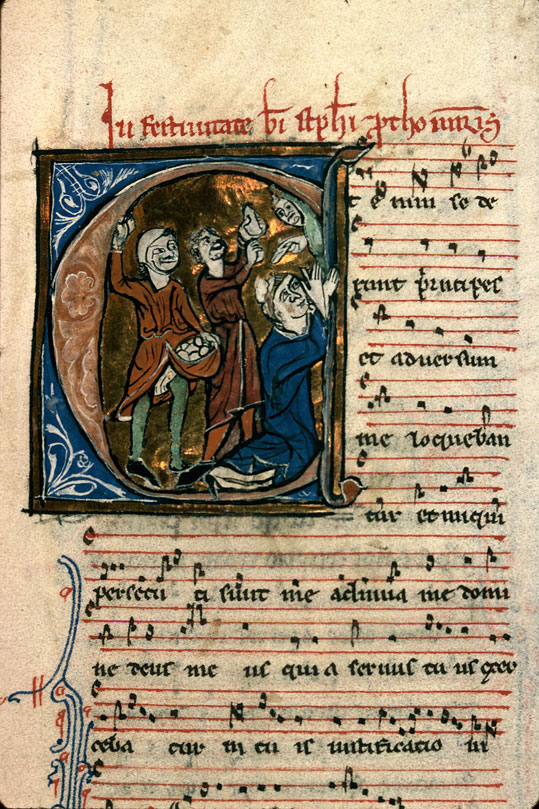 In festiuitate bi stephi ꝓthomris
t enim sede
runt p̃ncipes
et aduersum
me loqueban
tur et iniqui
persecu ti sunt me adiuua me domi
ne deus me us qui a seruus tu us exer
ceba tur in tu is iustificatio ni